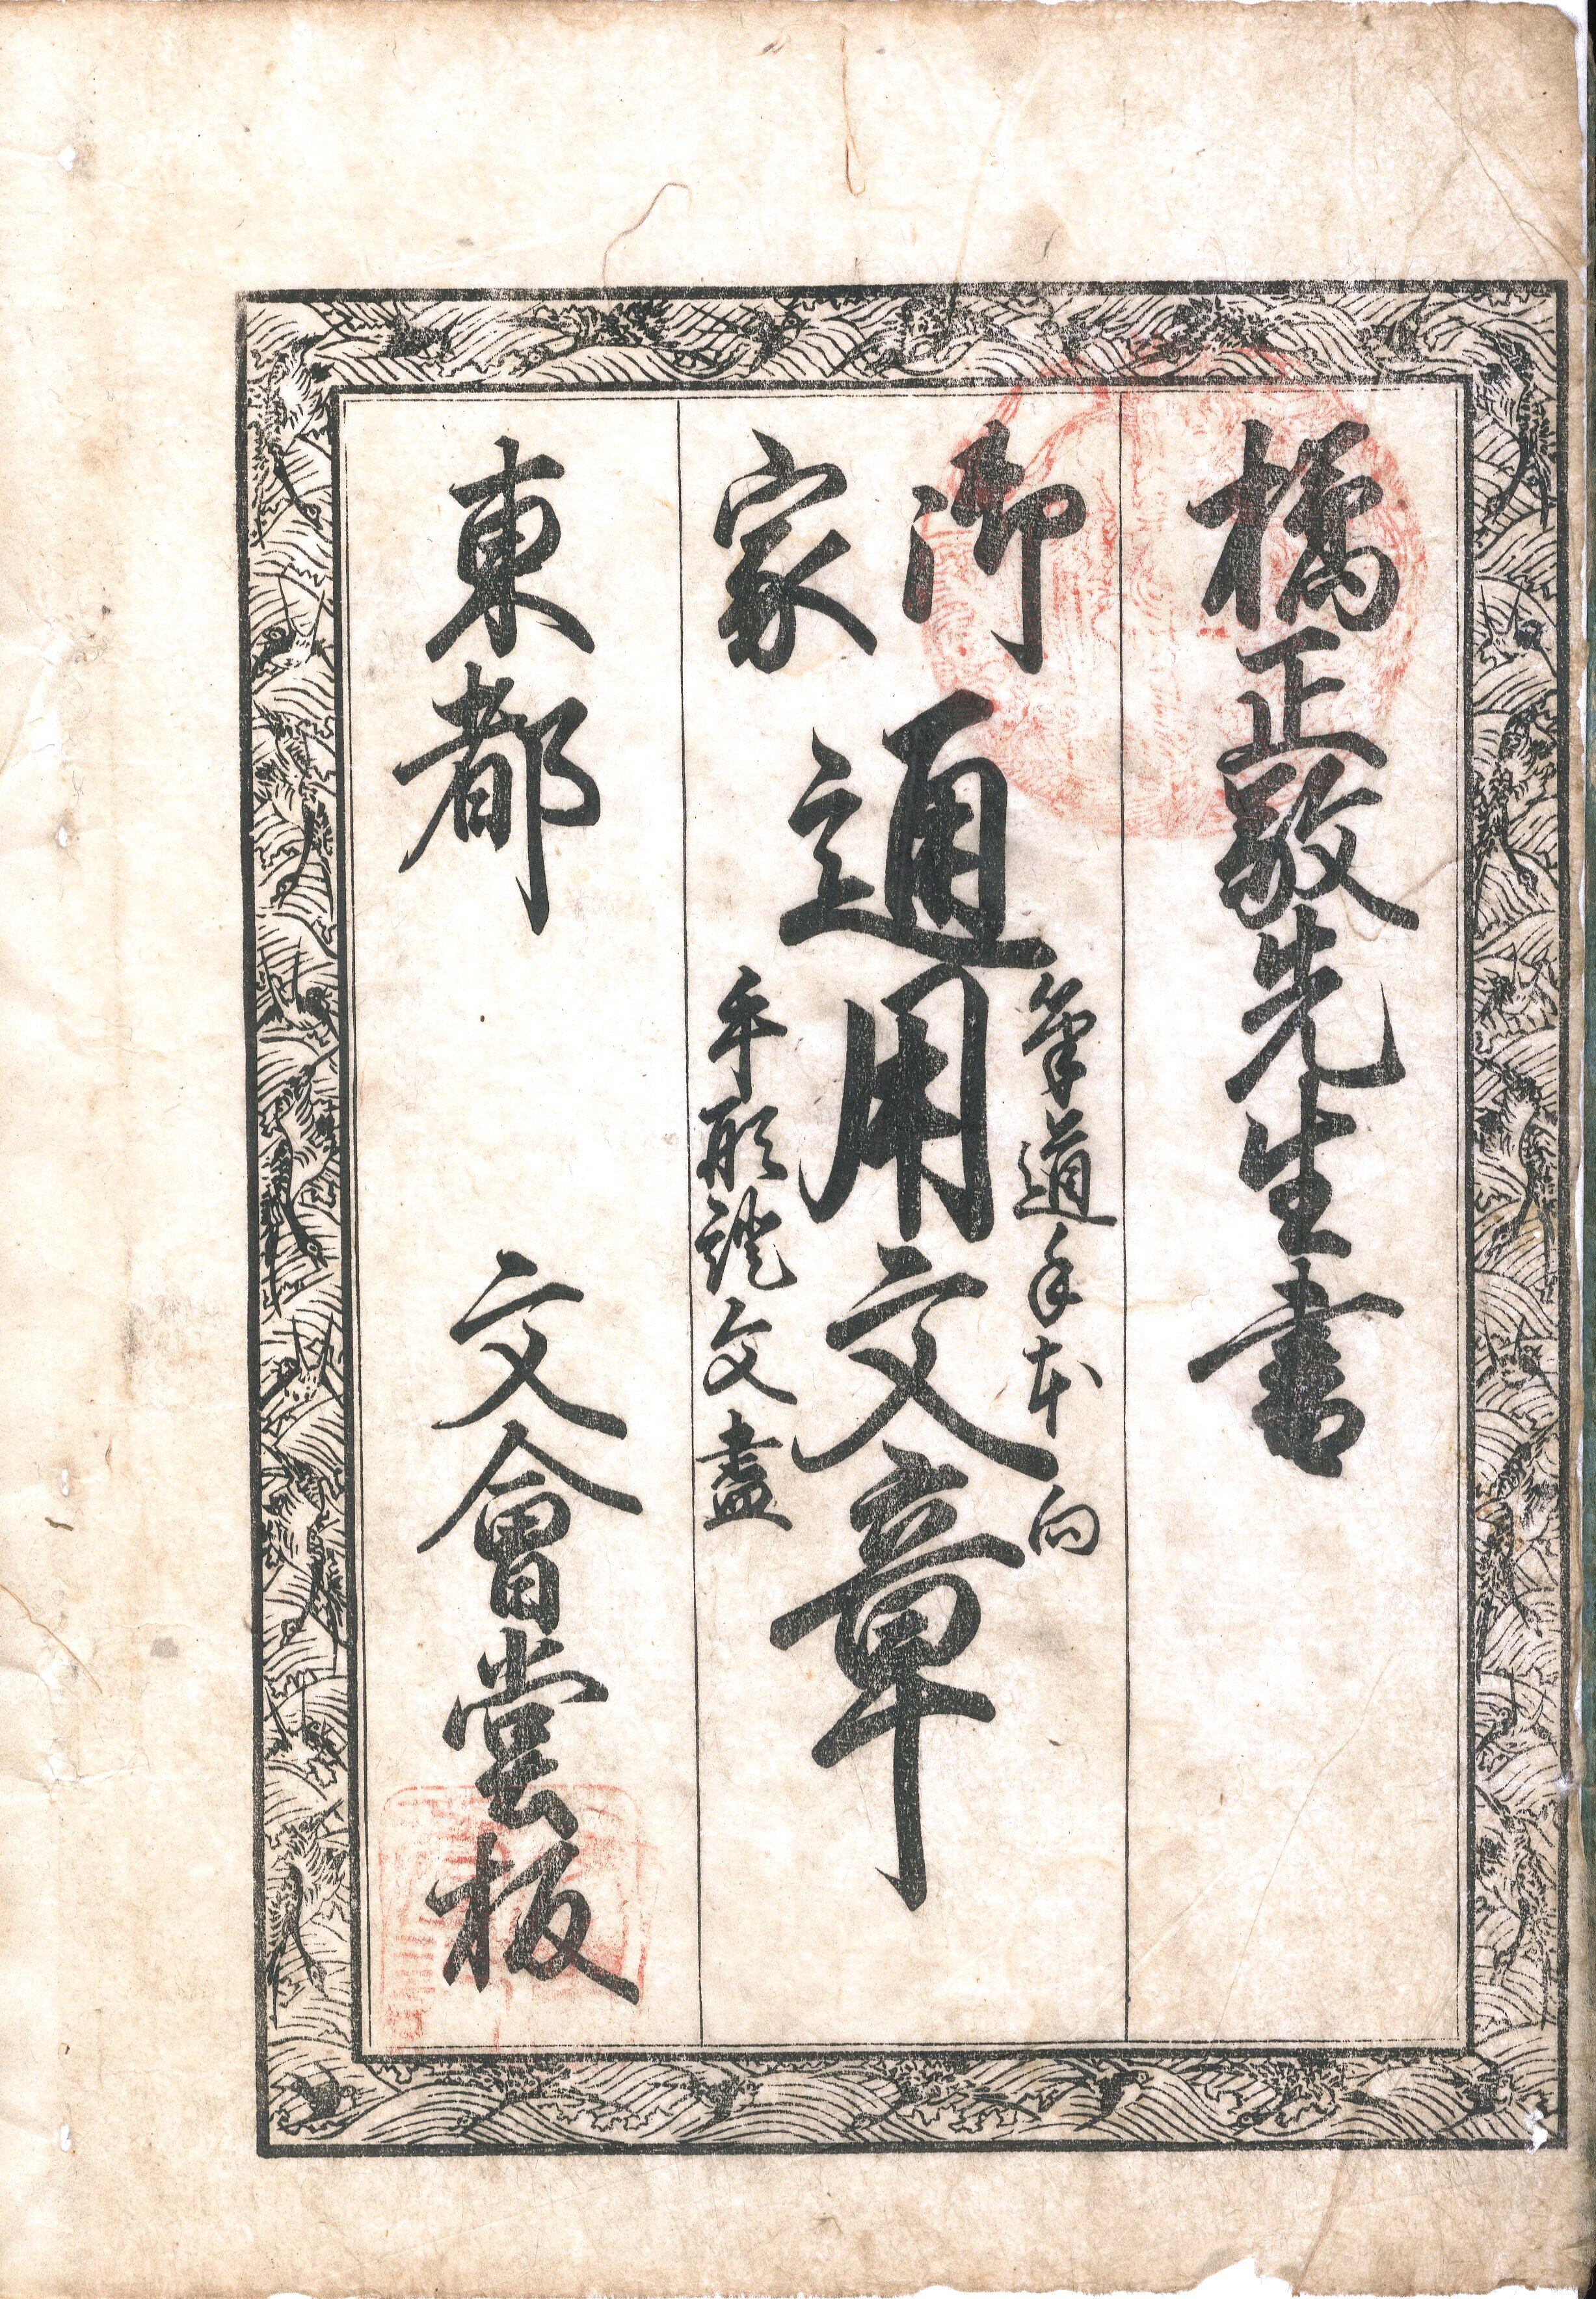 橘正敬先生書
御家
筆道手本向
通用文章
手形證文盡
東都 文會堂板